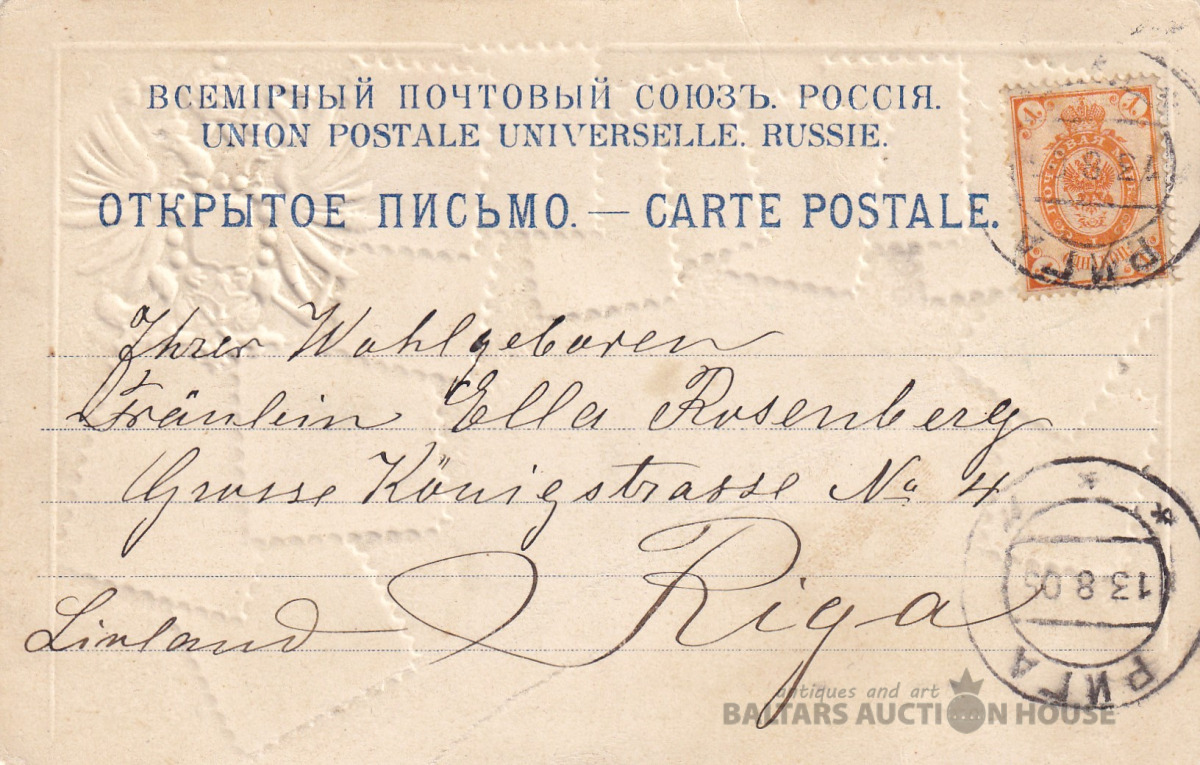 ВСЕМІРНЫЙ ПОЧТОВЫЙ СОЮЗЪ. РОССІЯ.
UNION POSTALE UNIVERSELLE. RUSSIE.
ОТКРЫТОЕ ПИСЬМО. — CARTE POSTALE.
1 1
ПОЧТОВАЯ
РИГА
Ihrer Wohlgeboren
Fräulein Ella Rosenberg
Grosse Königstrasse No 4
Riga
Livland
13 8 05
РИГА
antiques and art
BALTARS AUCTION HOUSE